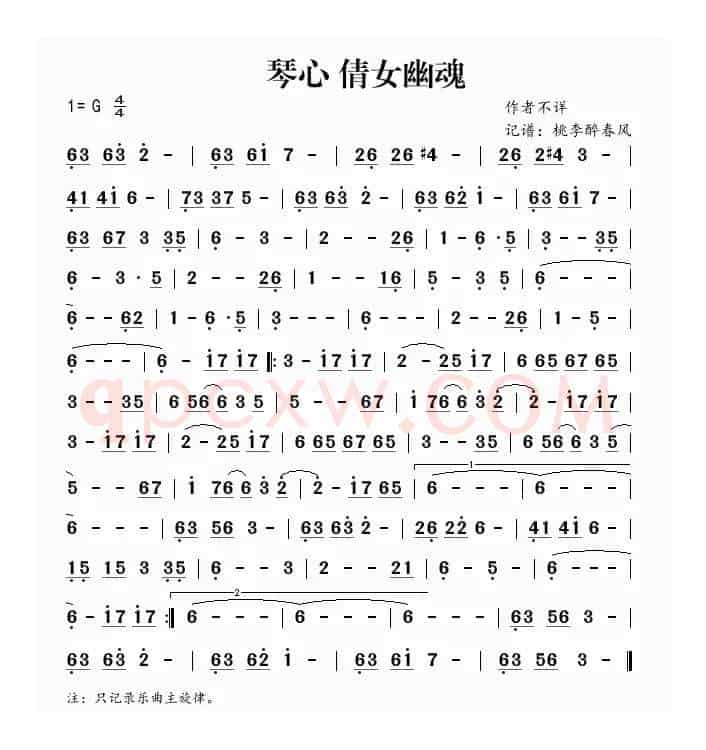 琴心 倩女幽魂
1= G 4/4
作者不详
记谱：桃李醉春风
63 63 2 - | 63 61 7 - | 26 26 #4 - | 26 2#4 3 - |
41 41 6 - | 73 37 5 - | 63 63 2 - | 63 62 1 - | 63 61 7 - |
63 67 3 35 | 6 - 3 - | 2 - - 26 | 1 - 6 · 5 | 3 - - 35 |
6 - 3 · 5 | 2 - - 26 | 1 - - 16 | 5 - 3 5 | 6 - - - |
6 - - 62 | 1 - 6 · 5 | 3 - - - | 6 - - - | 2 - - 26 | 1 - 5 - |
6 - - - | 6 - 17 17 ‖: 3 - 17 17 | 2 - 25 17 | 6 65 67 65 |
3 - - 35 | 6 56 6 3 5 | 5 - - 67 | 1 76 6 3 2 | 2 - 17 17 |
3 - 17 17 | 2 - 25 17 | 6 65 67 65 | 3 - - 35 | 6 56 6 3 5 |
1
5 - - 67 | 1 76 6 3 2 | 2 - 17 65 | 6 - - - | 6 - - - |
6 - - - | 63 56 3 - | 63 63 2 - | 26 22 6 - | 41 41 6 - |
15 15 3 35 | 6 - 3 - | 2 - - 21 | 6 - 5 - | 6 - - - |
2
6 - 17 17 :‖ 6 - - - | 6 - - - | 6 - - - | 63 56 3 - |
63 63 2 - | 63 62 1 - | 63 61 7 - | 63 56 3 - ‖
注：只记录乐曲主旋律。
qpcxw.COM